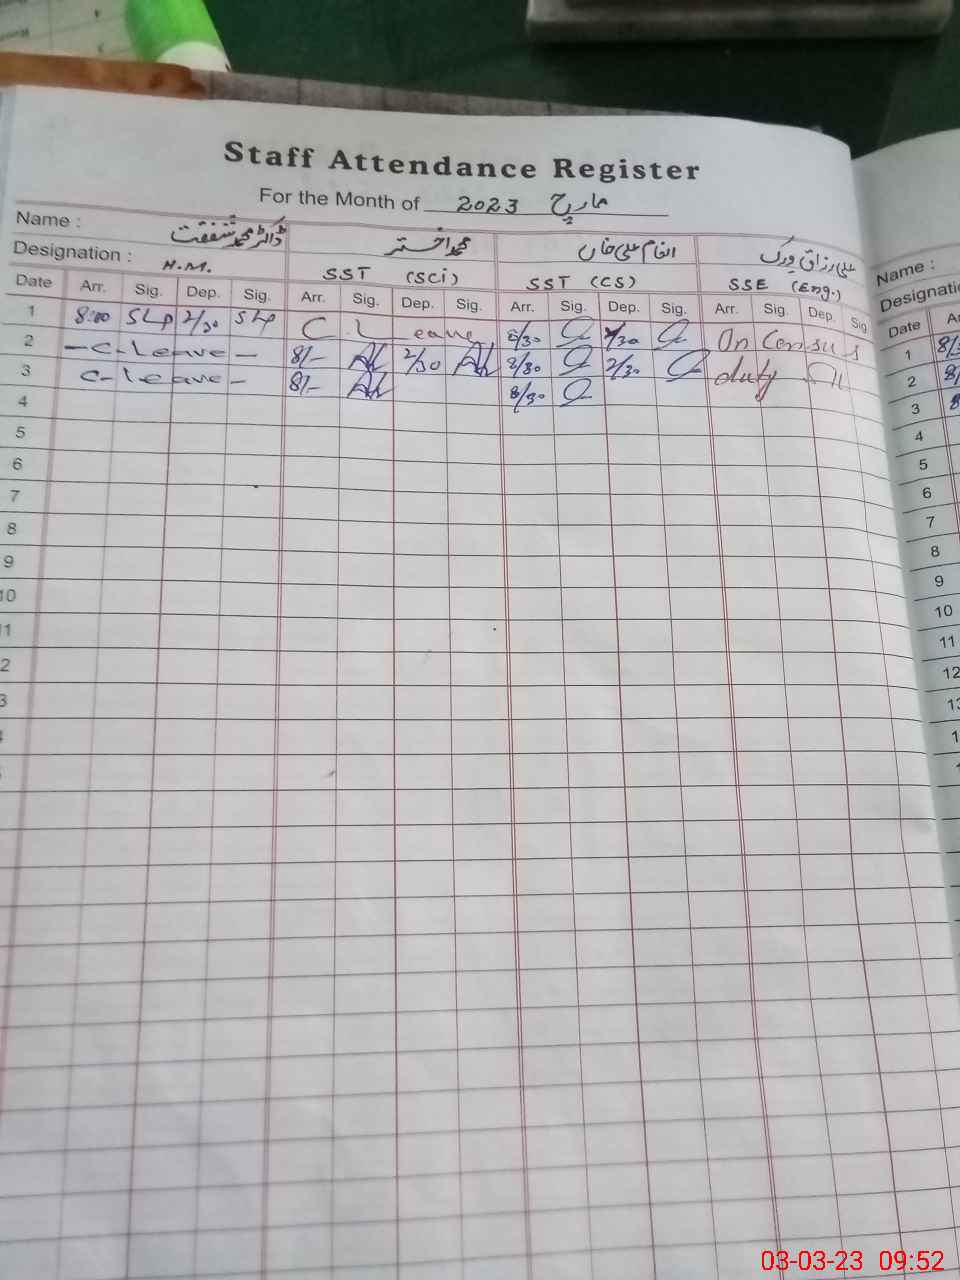 Staff Attendance Register
For the Month of 2023 مارچ
Name : ڈاکٹر محمد شفقت محمد اختر انعام علی خاں علی رزاق ورک
Designation : H.M. SST (Sci) SST (CS) SSE (Eng.)
Date Arr. Sig. Dep. Sig. Arr. Sig. Dep. Sig. Arr. Sig. Dep. Sig. Arr. Sig. Dep. Sig
1 8:00 2/30 C. Leave 8/30 2/30 On Census
2 - C-Leave - 8/- 2/30 8/30 2/30 duty
3 C-Leave - 8/- 8/30
4
5
6
7
8
9
10
11
2
3
Name :
Designati
Date
1
2
3
4
5
6
7
8
9
10
11
12
03-03-23 09:52